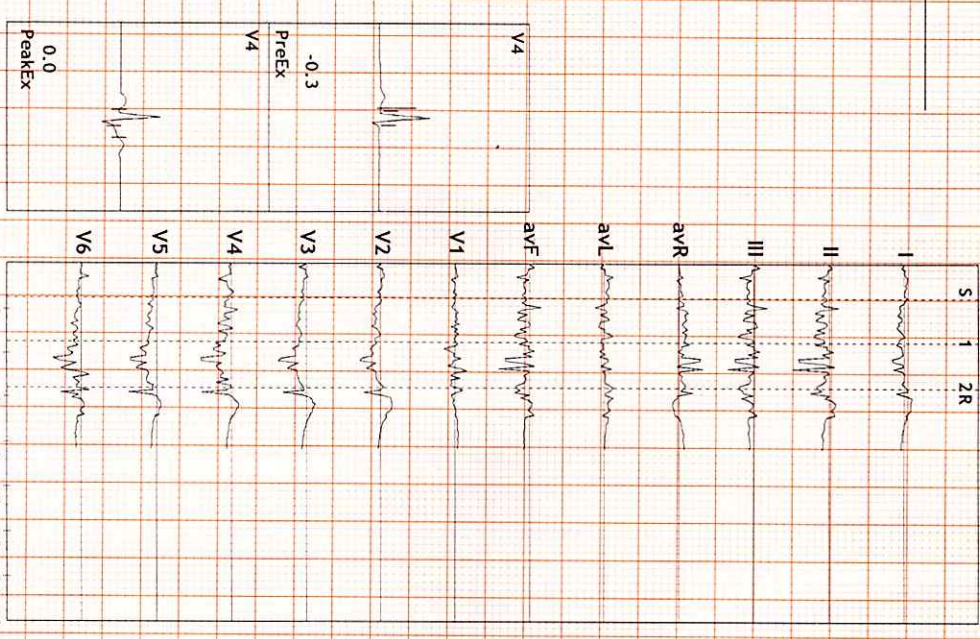 V4
-0.3
PreEx
V4
0.0
PeakEx
S 1 2R
I
II
III
avR
avL
avF
V1
V2
V3
V4
V5
V6